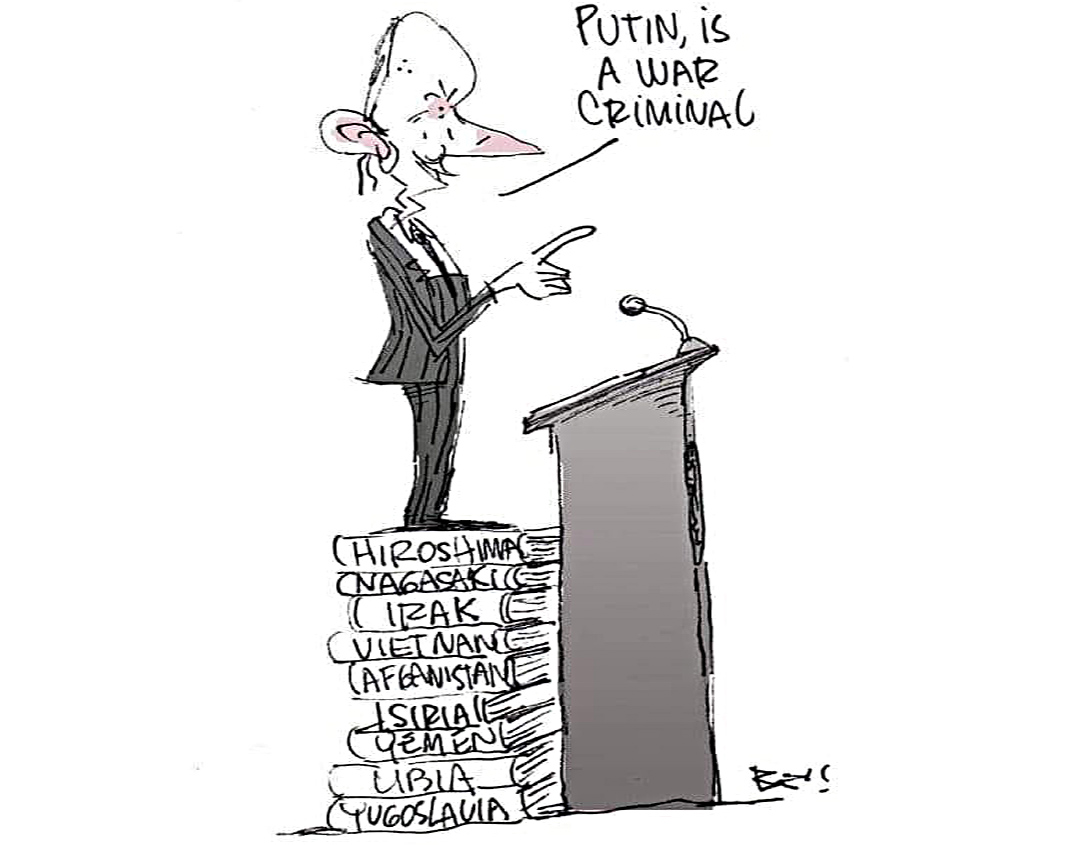 PUTIN, is
A WAR
CRiMiNAL
HIROSHIMA
NAGASAKI
IRAK
VIETNAN
AFGANISTAN
SIRIA
YEMEN
LIBIA
YUGOSLAVIA